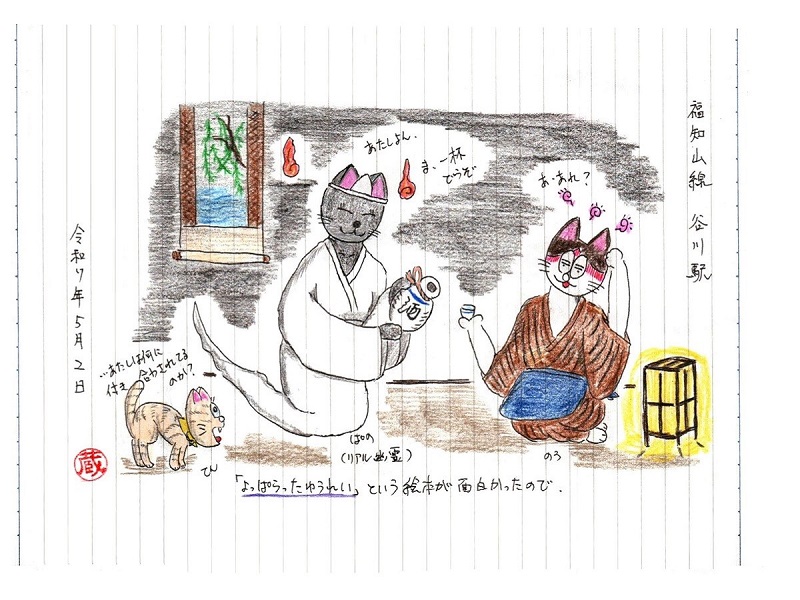 福知山線 谷川駅
あ、あれ?
ま、一杯
どうぞ
あたしよん。
酒
のう
ぱの
(リアル幽霊)
…あたしは何に
付き合わされてる
のか?
ぴ
令和7年5月2日
蔵
「よっぱらったゆうれい」という絵本が面白かったので.